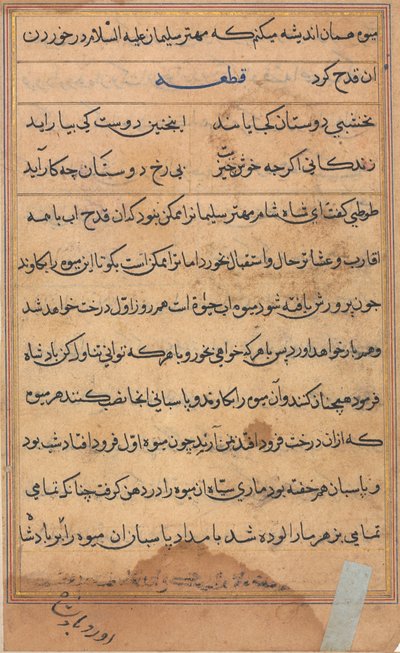 میوه همان اندیشه میکنم که مهتر سلیمان علیه السلام در خوردن
ان قدح کرد قطعه
نخشبی دوستان کجایابند اینچنین دوست کی بیاراید
زندکانی اکرچه خوش چیزیست بی رخ دوستان چه کار آید
طوطی کفت ای شاه شاهان مهتر سلیمانرا ممکن نبود که ان قدح اب با همه
اقارب و عشائر حال و استقبال بخورد اما ترا ممکن است بکو تا این میوه را بکاوند
چون پرورش یافته شود میوه اب حیوة است هم روز اول درخت خواهد شد
و هم بار خواهد اورد پس با هر که خواهی بخور و با هر که توانی تناول کن پادشاه
فرمود همچنان کنند و آن میوه را بکاوند و پاسبانی انجا نصب کنند هر میوه
که از ان درخت فرود افتد بمن آرید چون میوه اول فرود افتاد شب بود
و پاسبان هم خفته بود ماری سیاه ان میوه را در دهن کرفت چنانکه تمامی
تمامی بزهر مار الوده شد بامداد پاسبان ان میوه را بر پادشاه
اورد پادشاه